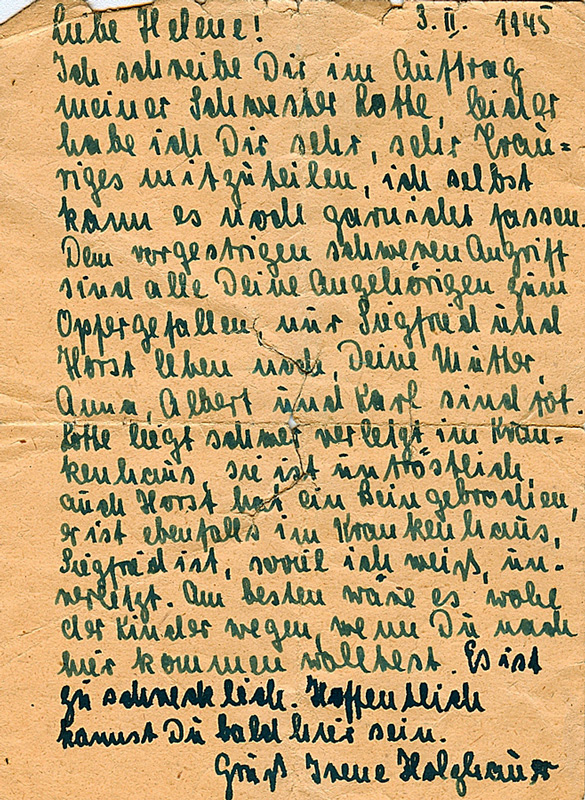 Liebe Helene! 3. II. 1945
Ich schreibe Dir im Auftrag
meiner Schwester Lotte, leider
habe ich Dir sehr, sehr Trau=
riges mitzuteilen, ich selbst
kann es noch garnicht fassen.
Dem vorgestrigen schweren Angriff
sind alle Deine Angehörigen zum
Opfer gefallen, nur Siegfried und
Horst leben noch, Deine Mutter,
Anna, Albert und Karl sind tot.
Lotte liegt schwer verletzt im Kran=
kenhaus, sie ist untröstlich,
auch Horst hat ein Bein gebrochen,
er ist ebenfalls im Krankenhaus,
Siegfried ist, soviel ich weiß, un=
verletzt. Am besten wäre es wohl
der Kinder wegen, wenn Du nach
hier kommen wolltest. Es ist
zu schrecklich. Hoffentlich
kannst Du bald hier sein.
Gruß Irene Holzhauer